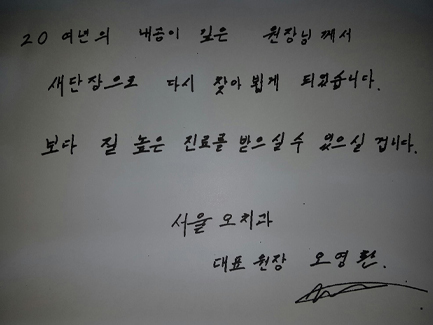 20 여년의 내공이 깊은 원장님께서
새단장으로 다시 찾아 뵙게 되었습니다.
보다 질 높은 진료를 받으실 수 있으실 겁니다.
서울 오치과
대표 원장 오영환.